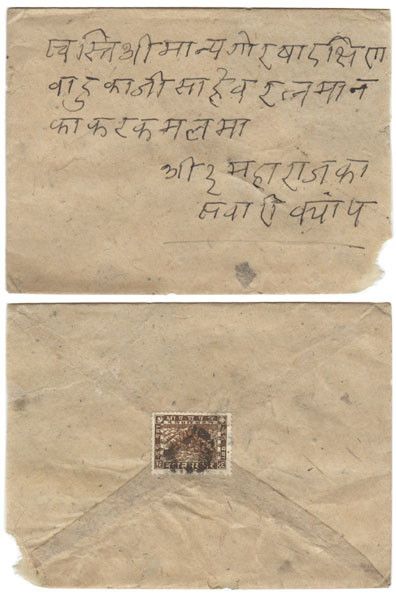 स्वस्तिश्रीमान्यगोरषादक्षिण
वाहु काजी साहेव रत्नमान
का करकमलमा
श्री ३ महाराजका
सवारी क्यांप